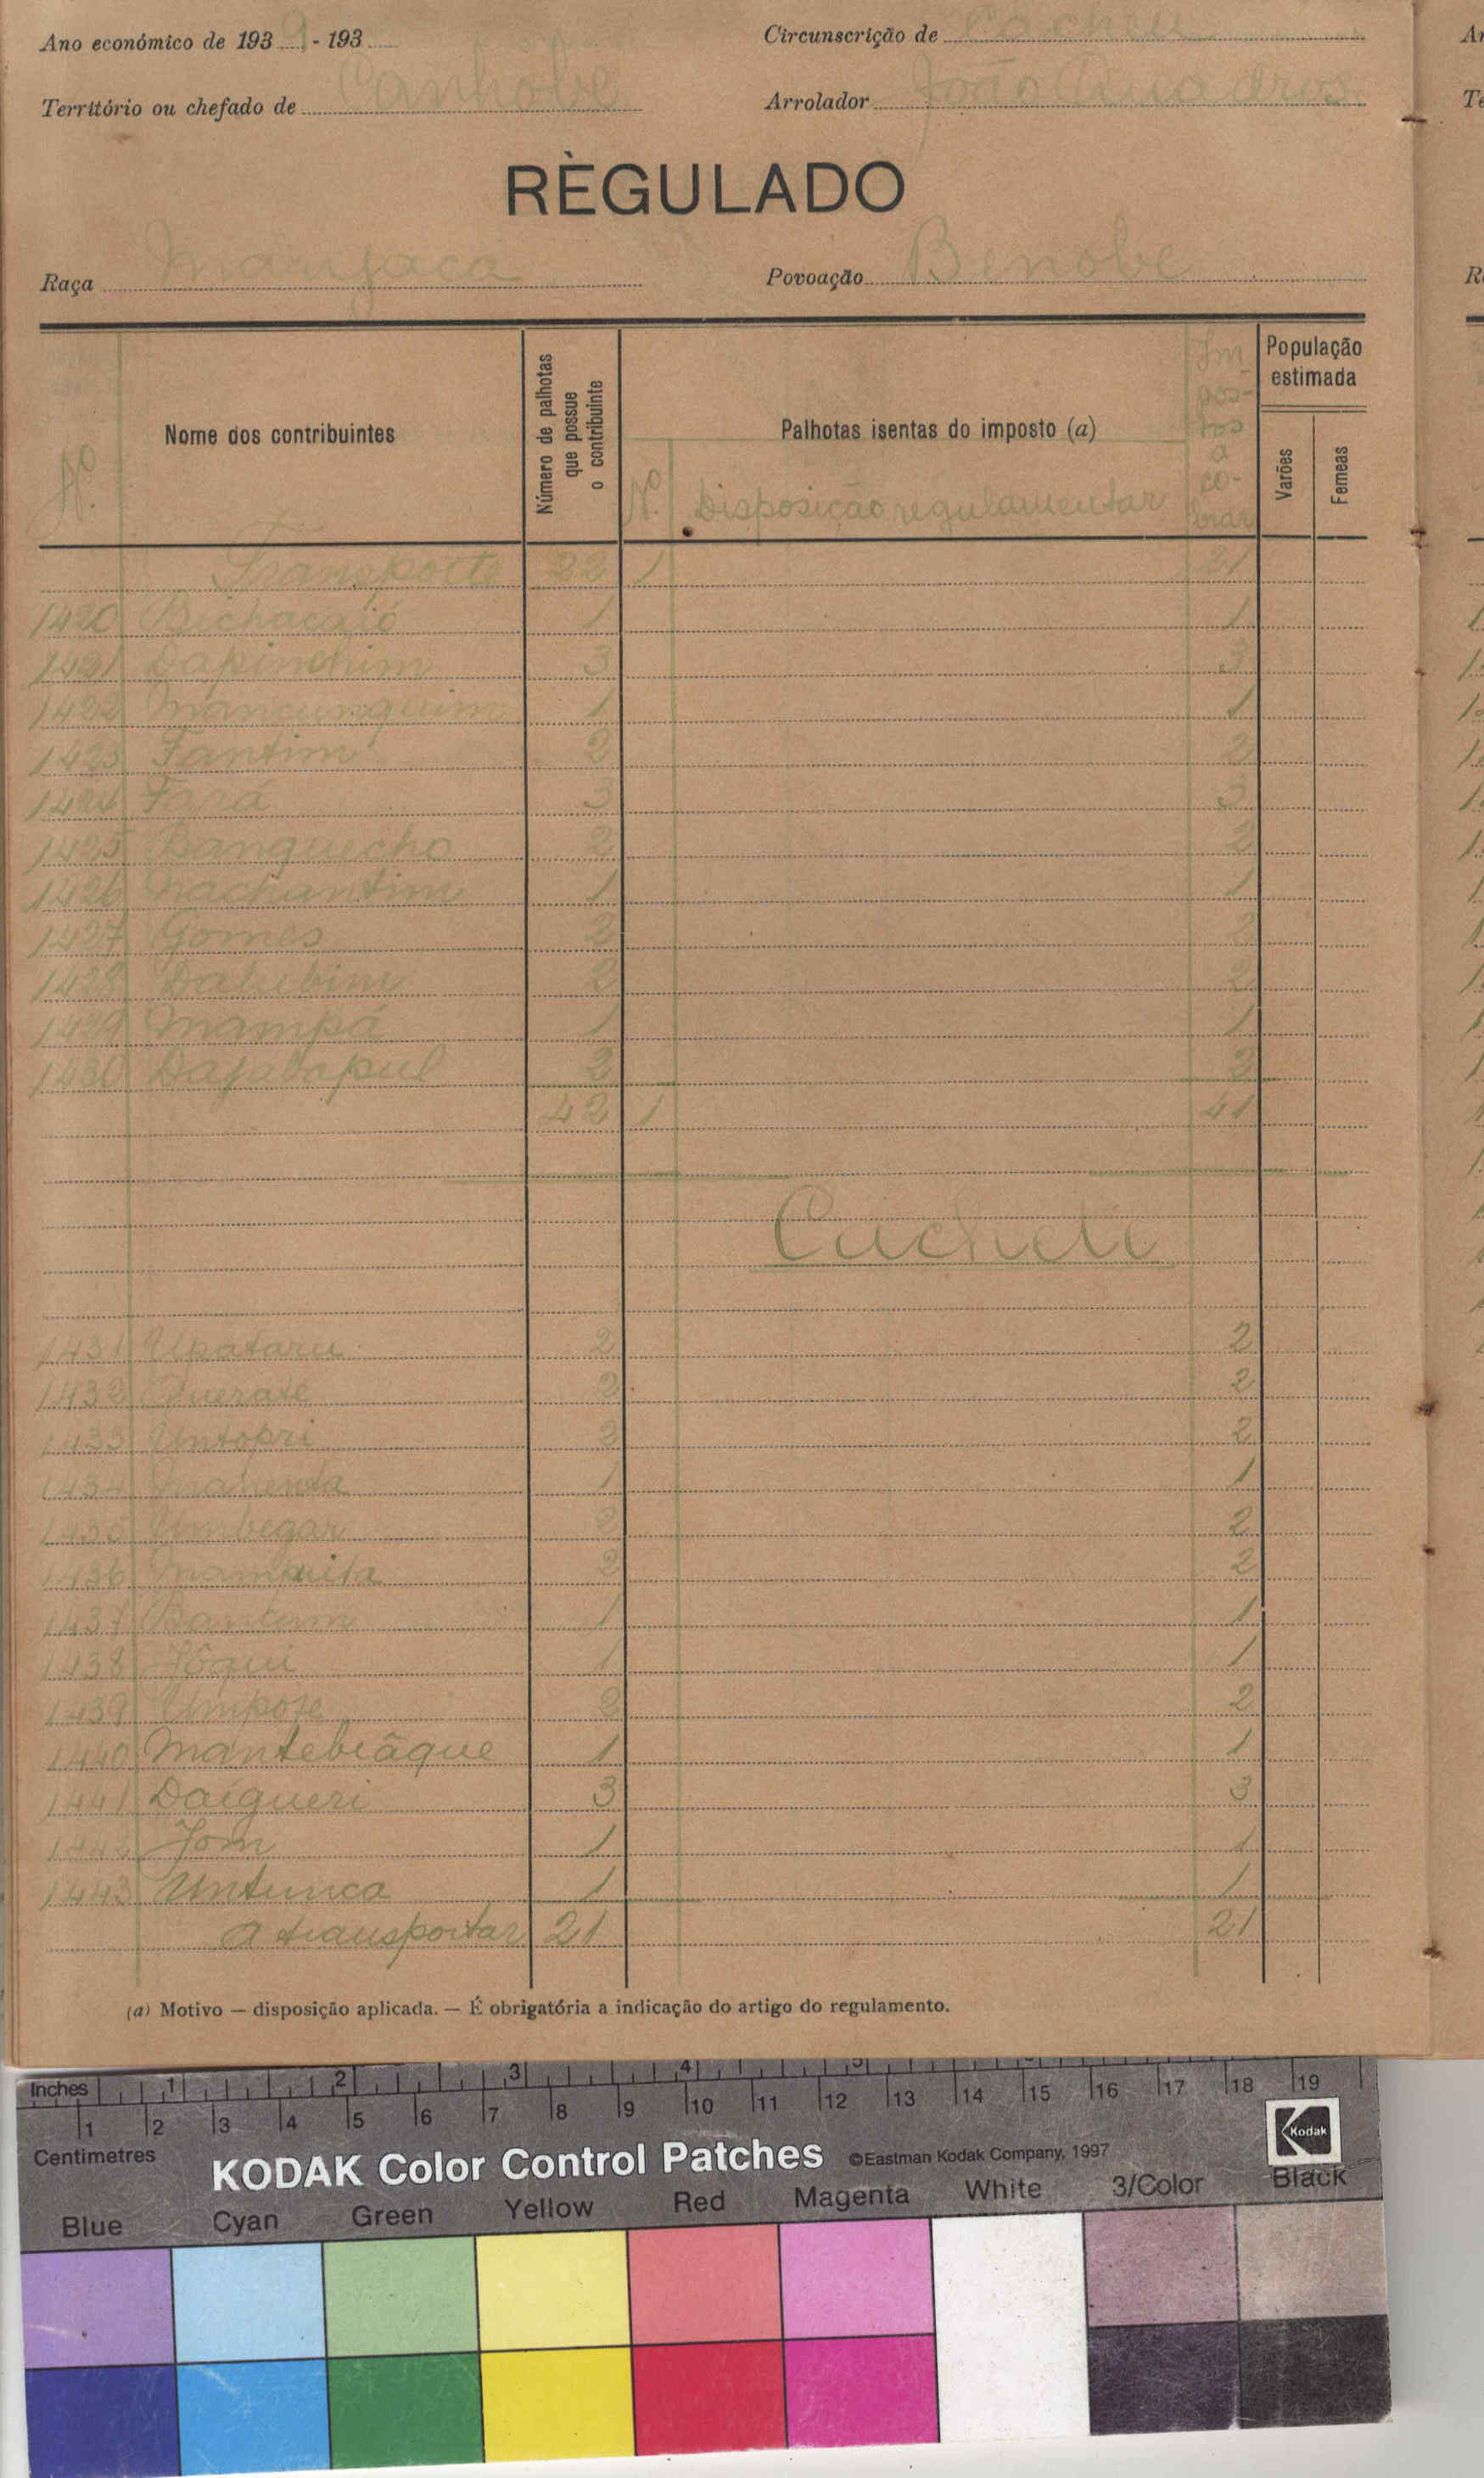 Ano económico de 1939 - 193
Circunscrição de Cacheu
Território ou chefado de Canhobe
Arrolador João Quadros
RÈGULADO
Raça Manjaca
Povoação Benobe
N.º
Nome dos contribuintes
Número de palhotas que possue o contribuinte
Palhotas isentas do imposto (a)
N.º Disposição regulamentar
Impostos a cobrar
População estimada
Varões
Femeas
Transporte 22 1 21
1420 Bichacaió 1 1
1421 Dapinchim 3 3
1422 Mancunguim 1 1
1423 Fantim 2 2
1424 Fará 3 3
1425 Banguecho 2 2
1426 Nachantim 1 1
1427 Gomes 2 2
1428 Dalubim 2 2
1429 Mampá 1 1
1430 Dajabapul 2 2
42 1 41
1431 Upataru 2 2
1432 Querate 2 2
1433 Untopri 2 2
1434 1 1
1435 Umbegar 2 2
1436 Mampuita 2 2
1437 1 1
1438 Jôqui 1 1
1439 Umpose 2 2
1440 Mantebiâque 1 1
1441 Daigueri 3 3
1442 Jom 1 1
1443 Untunca 1 1
A transportar 21 21
(a) Motivo — disposição aplicada. — É obrigatória a indicação do artigo do regulamento.
Inches 1 2 3 4 5
1 2 3 4 5 6 7 8 9 10 11 12 13 14 15 16 17 18 19
Centimetres
KODAK Color Control Patches ©Eastman Kodak Company, 1997
Kodak
Blue Cyan Green Yellow Red Magenta White 3/Color Black